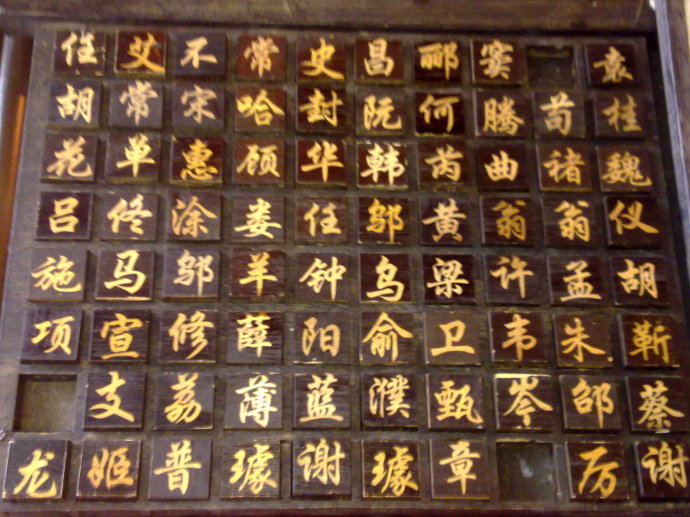 任 艾 不 常 史 昌 郦 窦 袁
胡 常 宋 哈 封 阮 何 腾 荀 桂
花 单 惠 顾 华 韩 芮 曲 褚 魏
吕 佟 涂 娄 任 邬 黄 翁 翁 仪
施 马 邬 羊 钟 乌 梁 许 孟 胡
项 宣 修 薛 阳 俞 卫 韦 朱 靳
支 荔 薄 蓝 濮 甄 岑 邰 蔡
龙 姬 普 璩 谢 璩 章 厉 谢